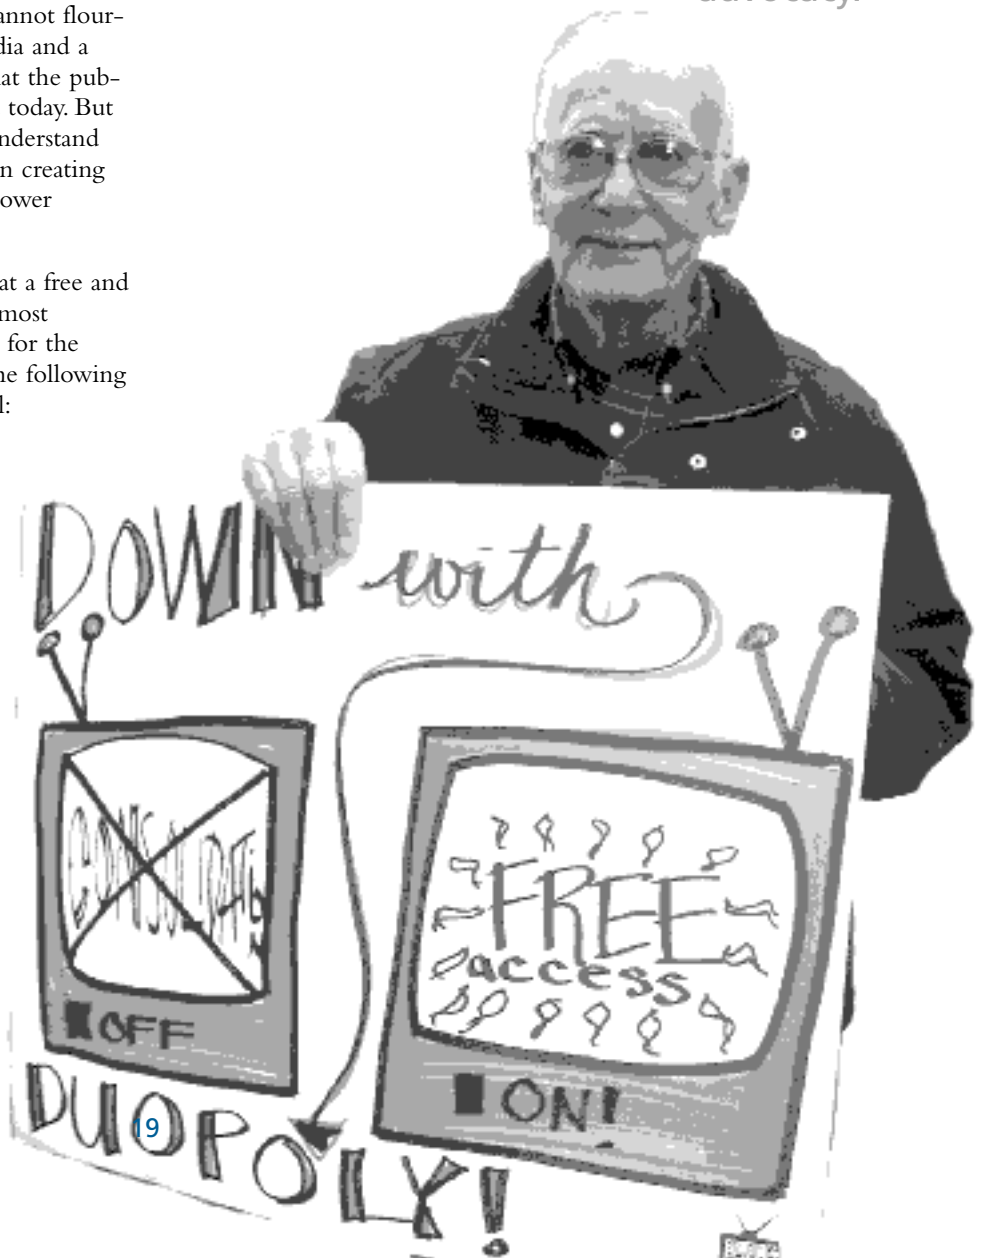 advocacy.
annot flour-
dia and a
at the pub-
today. But
nderstand
n creating
ower
at a free and
most
for the
he following
l:
DOWN with
OFF
FREE
access
ON!
DUOPOLY!
19